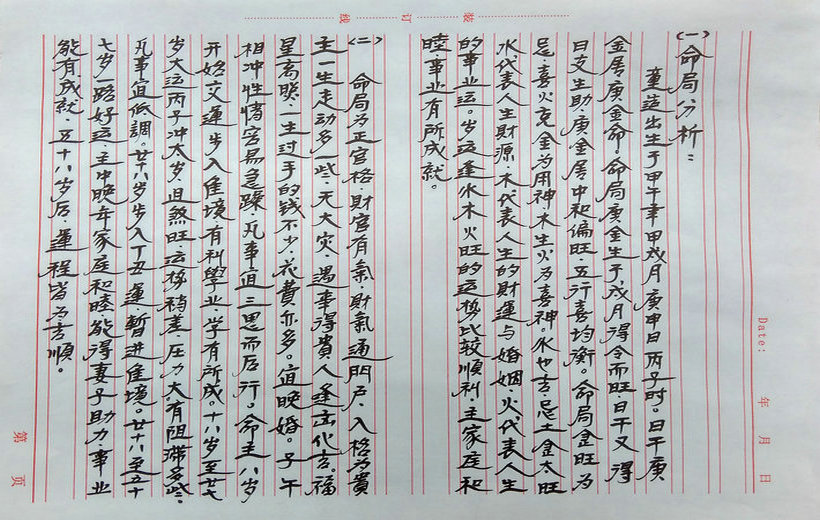 (一)命局分析：
乾造出生于甲午年甲戌月庚申日丙子时。日干庚
金居·庚金命。命局庚金生于戌月得令而旺·日干又得
日支生助·庚金居中和偏旺·五行喜均衡。命局金旺为
忌·喜火克金为用神木生火为喜神。水也吉·忌土金太旺
水代表人生財源·木代表人生的財運与婚姻·火代表人生
的事业运。岁运逢水木火旺的运势比较順利·主家庭和
睦·事业有所成就。
(二)命局为正官格·財官有氣·財氣通門户·入格为貴
主一生走动多一些·无大灾·遇事得貴人逢凶化吉。福
星高照·一生过手的钱不少·花費亦多。宜晚婚。子午
相冲性情容易急躁·凡事宜三思而后行。命主八岁
开始交運步入佳境有利學业·学有所成。十八岁至廿七
岁大运丙子冲太岁·且煞旺运势稍差·压力大有阻滞多些·
凡事宜低調。廿八岁步入丁丑運暫进佳境。廿十八至五十
七岁一路好运·主中晚年家庭和睦能得妻子助力·事业
能有成就·五十八岁后運程皆为吉順。
装 订 线
Date: 年 月 日
第 页